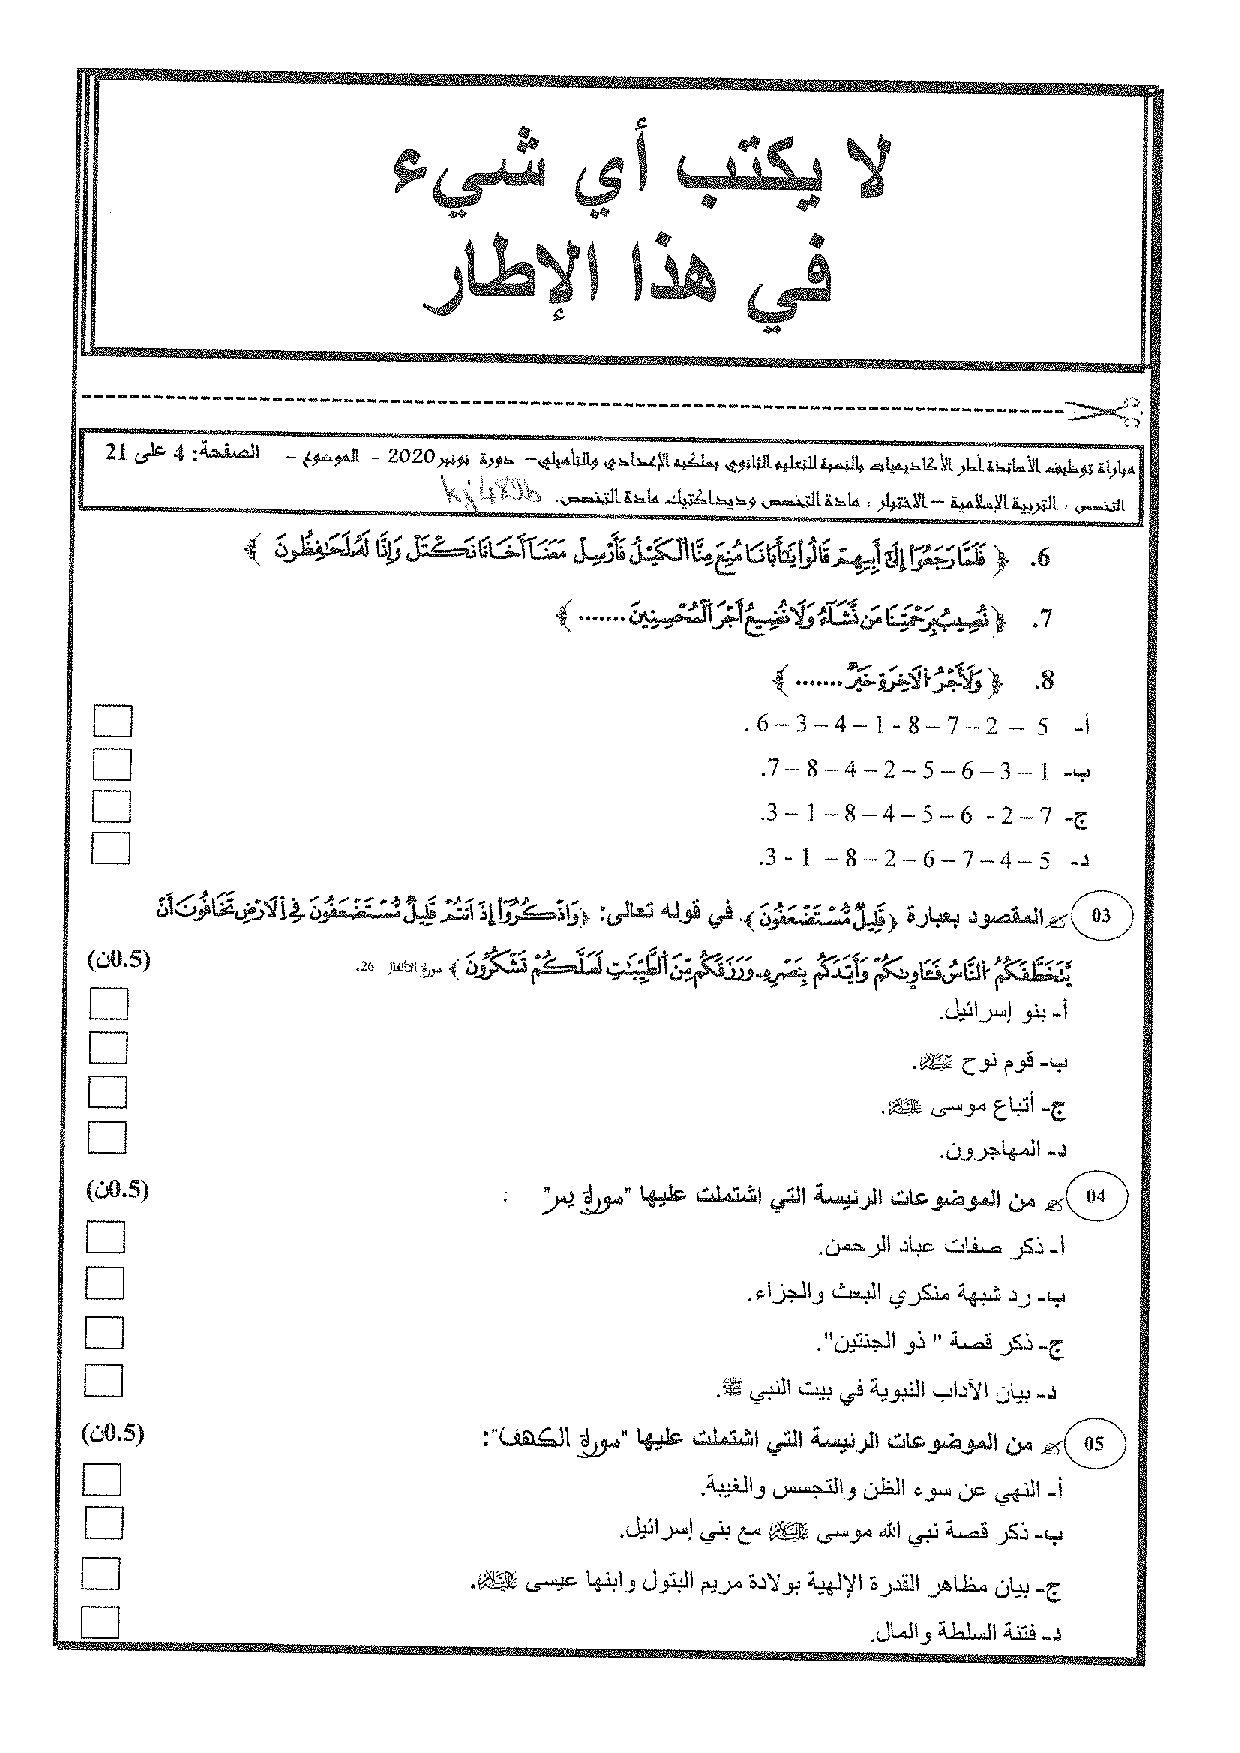 لا يكتب أي شيء
في هذا الإطار
مباراة توظيف الأساتذة أطر الأكاديميات بالنسبة للتعليم الثانوي بسلكيه الإعدادي والتأهيلي– دورة نونبر 2020 - الموضوع - الصفحة: 4 على 21
التخصص : التربية الإسلامية – الاختبار : مادة التخصص وديداكتيك مادة التخصص.
6. ﴿ فَلَمَّا رَجَعُوٓاْ إِلَىٰٓ أَبِيهِمْ قَالُواْ يَٰٓأَبَانَا مُنِعَ مِنَّا اَلْكَيْلُ فَأَرْسِلْ مَعَنَآ أَخَانَا نَكْتَلْ وَإِنَّا لَهُۥ لَحَٰفِظُونَ ﴾
7. ﴿ نُصِيبُ بِرَحْمَتِنَا مَن نَّشَآءُ وَلَا نُضِيعُ أَجْرَ اَلْمُحْسِنِينَ ....... ﴾
8. ﴿ وَلَأَجْرُ اُلَاخِرَةِ خَيْرٌ ....... ﴾
أ- 5 – 2 – 7 – 8 - 1 – 4 – 3 – 6 .
ب- 1 – 3 – 6 – 5 – 2 – 4 – 8 – 7.
ج- 7 – 2 - 6 – 5 – 4 – 8 – 1 – 3.
د- 5 – 4 – 7 – 6 – 2 – 8 – 1 - 3.
03 المقصود بعبارة ﴿قَلِيلٌ مُّسْتَضْعَفُونَ﴾. في قوله تعالى: ﴿وَاذْكُرُوٓاْ إِذَ اَنتُمْ قَلِيلٌ مُّسْتَضْعَفُونَ فِي اِلَارْضِ تَخَافُونَ أَنْ
يَّتَخَطَّفَكُمُ اُلنَّاسُ فَـَٔاوَىٰكُمْ وَأَيَّدَكُم بِنَصْرِهِۦ وَرَزَقَكُم مِّنَ اَلطَّيِّبَٰتِ لَعَلَّكُمْ تَشْكُرُونَ ﴾ سورة الأنفال 26. (0.5ن)
أ- بنو إسرائيل.
ب- قوم نوح عليه السلام.
ج- أتباع موسى عليه السلام.
د- المهاجرون.
04 من الموضوعات الرئيسة التي اشتملت عليها "سورة يس" : (0.5ن)
أ- ذكر صفات عباد الرحمن.
ب- رد شبهة منكري البعث والجزاء.
ج- ذكر قصة " ذو الجنتين".
د- بيان الآداب النبوية في بيت النبي ﷺ.
05 من الموضوعات الرئيسة التي اشتملت عليها "سورة الكهف": (0.5ن)
أ- النهي عن سوء الظن والتجسس والغيبة.
ب- ذكر قصة نبي الله موسى عليه السلام مع بني إسرائيل.
ج- بيان مظاهر القدرة الإلهية بولادة مريم البتول وابنها عيسى عليه السلام.
د- فتنة السلطة والمال.